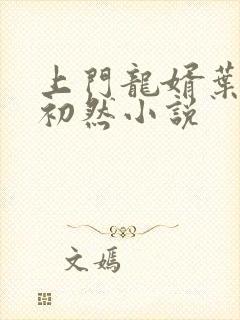 上門龍婿葉
初然小說
文媽